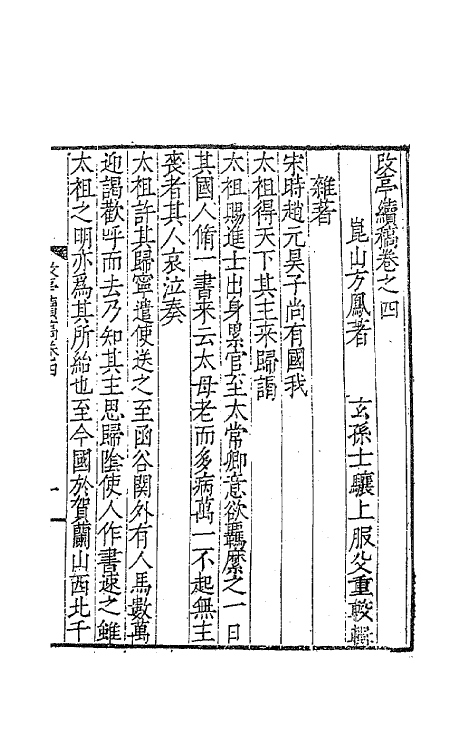 改亭續稿卷之四
崑山方鳳著 玄孫士驤上服父重較輯
雜著
宋時趙元昊子尚有國我
太祖得天下其主來歸謁
太祖賜進士出身累官至太常卿意欲羈縻之一日
其國人脩一書来云太母老而多病萬一不起無主
喪者其人哀泣奏
太祖許其歸寧遣使送之至函谷関外有人馬數萬
迎謁歡呼而去乃知其主思歸陰使人作書速之雖
太祖之明亦為其所紿也至今國於賀蘭山西北千
改亭續稿卷四 一